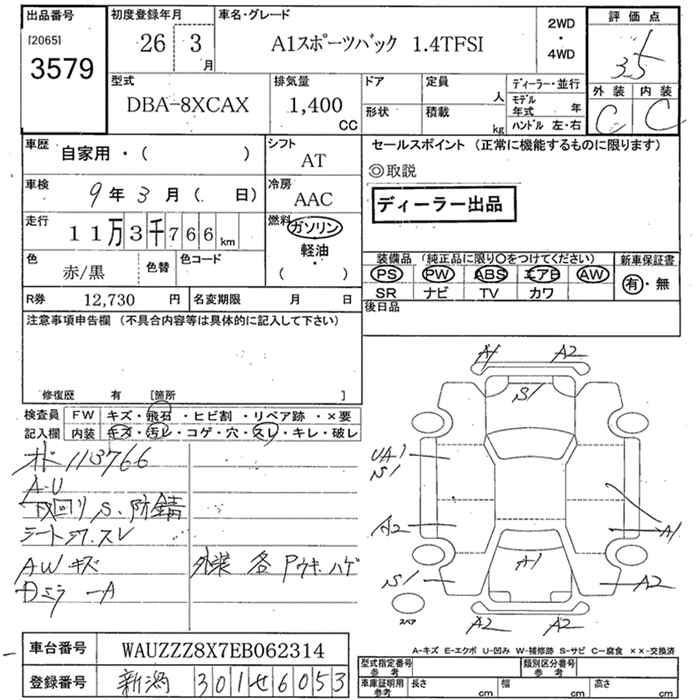 出品番号 初度登録年月 車名・グレード 2WD・4WD 評価点
[2065] 3579 26 3月 A1スポーツバック 1.4TFSI 3.5
型式 排気量 ドア 定員 人 ディーラー・並行 外装 内装
DBA-8XCAX 1,400 CC 形状 積載 kg モデル年式 年 C C
ハンドル 左・右
車歴 自家用・( ) シフト AT セールスポイント (正常に機能するものに限ります)
◎取説
車検 9年3月( . 日) 冷房 AAC ディーラー出品
走行 11万3千766km 燃料 ガソリン 軽油・( )
色 赤/黒 色替 色コード
装備品 (純正品に限り○をつけてください) 新車保証書
PS PW ABS エアB AW 有・無
SR ナビ TV カワ
R券 12,730 円 名変期限 月 日 後日品
注意事項申告欄 (不具合内容等は具体的に記入して下さい)
修復歴 有 [箇所 ]
検査員 FW キズ・飛石・ヒビ割・リペア跡・×要
記入欄 内装 キズ・汚レ・コゲ・穴・スレ・キレ・破レ
113766
A-U
下回りS、防錆
シート スレ
AWキズ 外装 各 Pウキ、ハゲ
Dミラ -A
A1 A2
S1
UA1
S1
A2 A1
A1
S1 A2
A2 A2
スペア
A-キズ E-エクボ U-凹み W-補修跡 S-サビ C-腐食 ××-交換済
車台番号 WAUZZZ8X7EB062314
型式指定番号 参考 類別区分番号 参考
登録番号 新潟 301せ6053
車庫証明用参考 長さ cm 幅 cm 高さ cm